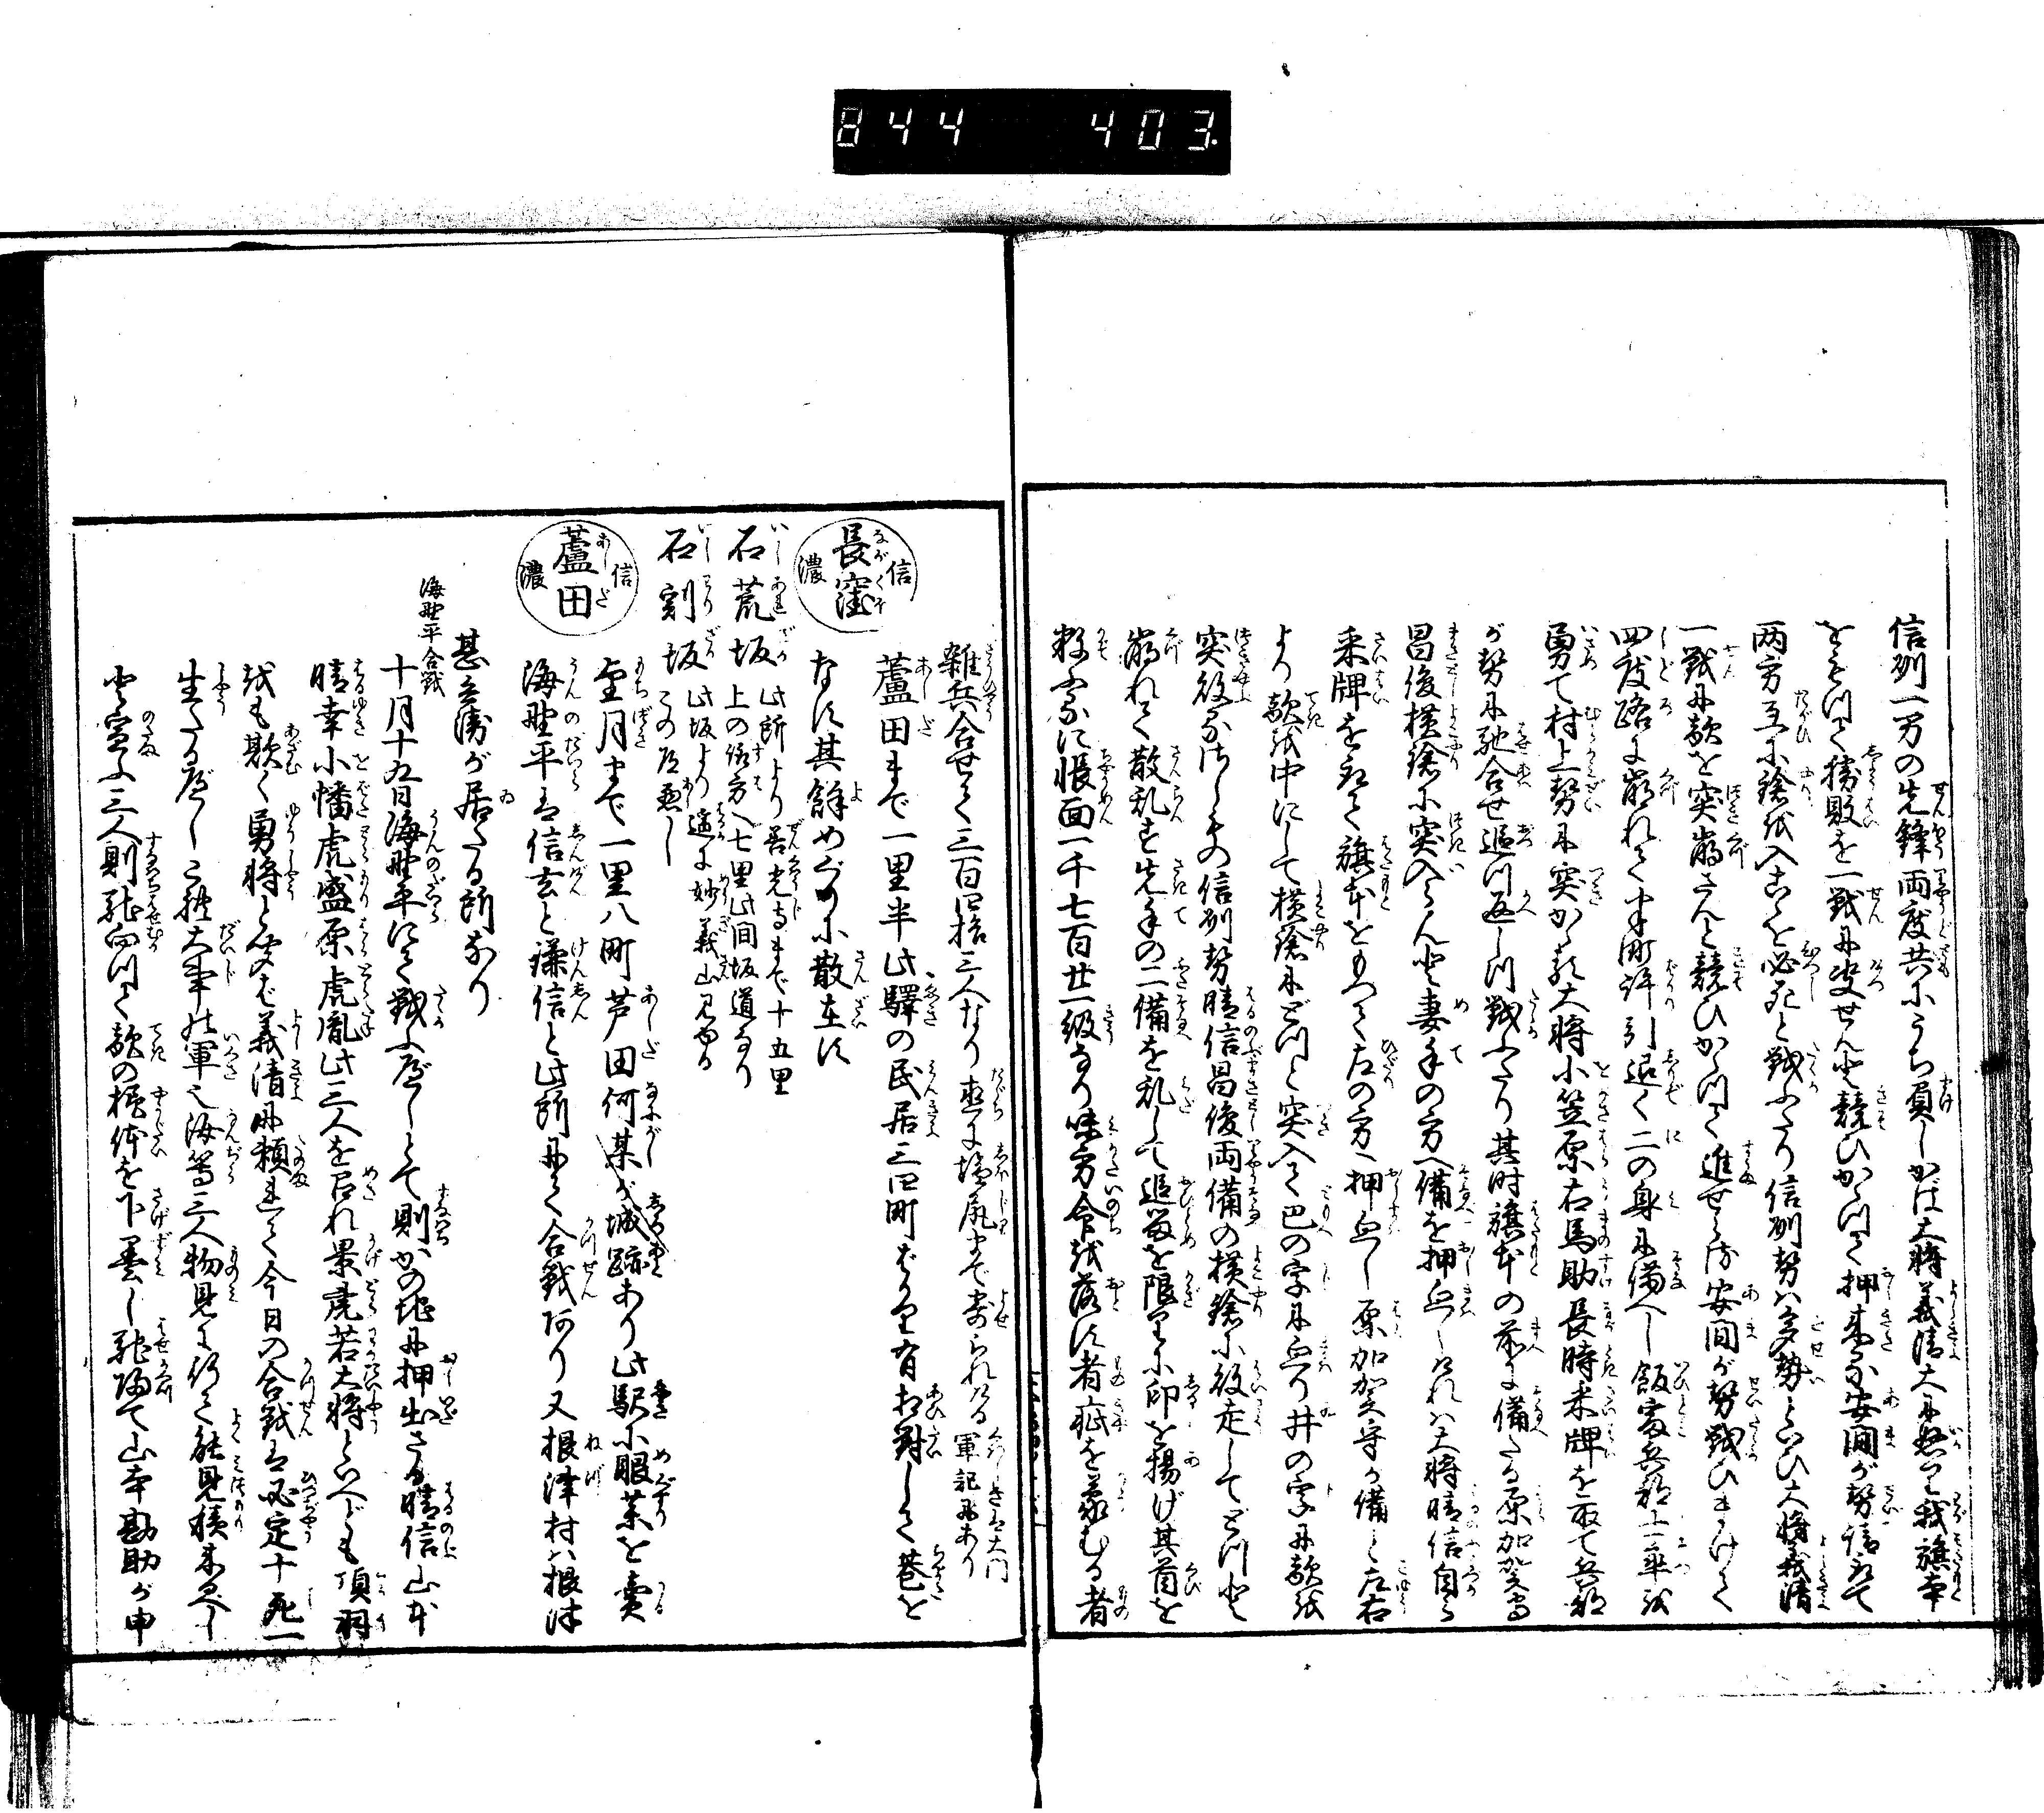 844 403
信州一男の先鋒両度共にうち負しかば大将義清大に怒て我旗本
をもつて勝敗を一戦に決せんと競ひかゝつて押来る安間が勢请取て
両方互に鎗を入こゝを必死と戦ふたり信州勢ハ多勢といひ大将義清
一戦に敵を突崩さんと競ひかゝつて進せる故安間が勢戦ひまけて
四度路に崩れて半町計引退く二の身に備へし飯富兵部三千を
勇て村上勢に突かゝる大将小笠原右馬助長時来牌を取て兵部
が勢に馳合せ追つ返しつ戦ふたり其时旗本の前に備たる原加賀守
昌俊横鎗に突入らんと妻手の方へ備を押出しけれハ大将晴信自ら
来牌を取て旗本をもつて左の方へ押出し原加賀守が備と左右
より敵を中にして横鎗にどつと突入て巴の字に廻り井の字に敵を
突破るさしもの信州勢晴信昌俊両備の横鎗に敗走してどつと
崩れて散乱す先手の二備を乱して追留を限りに印を揚げ其首を
数ふるに帳面一千七百廿一級なり味方命を落す者疵を蒙むる者
雑兵合せて三百四拾三人なり直に塩尻まで寄られける 軍記に大門にあり
蘆田まで一里半此驛の民居三四町ばかり有相對して巷を
信濃 長窪
なす其餘めぐりに散在す
石荒坂 此所より善光寺まで十五里 上の諏方へ七里此間坂道なり
石割坂 此坂より遥に妙義山見ゆる この道悪し
信濃 蘆田
望月まで一里八町芦田何某が城跡あり此駅に眼薬を賣
海野平は信玄と謙信と此所にて合戦あり又根津村ハ根津
甚兵衛が居たる所なり
海野平合戦
十月十九日海野平にて戦ふべしとて則かの地に押出さる晴信山本
晴幸小幡虎盛原虎胤此三人を召れ景虎若大将といへども項羽
をも欺く勇将と聞ば義清に頼まれて今日の合戦は必定十死一
生たるべしこれ大事の軍也海等三人物見に行て能見積来るべし
と宣ふ三人則馳向つて敵の様体を下墨し馳帰て山本勘助が申